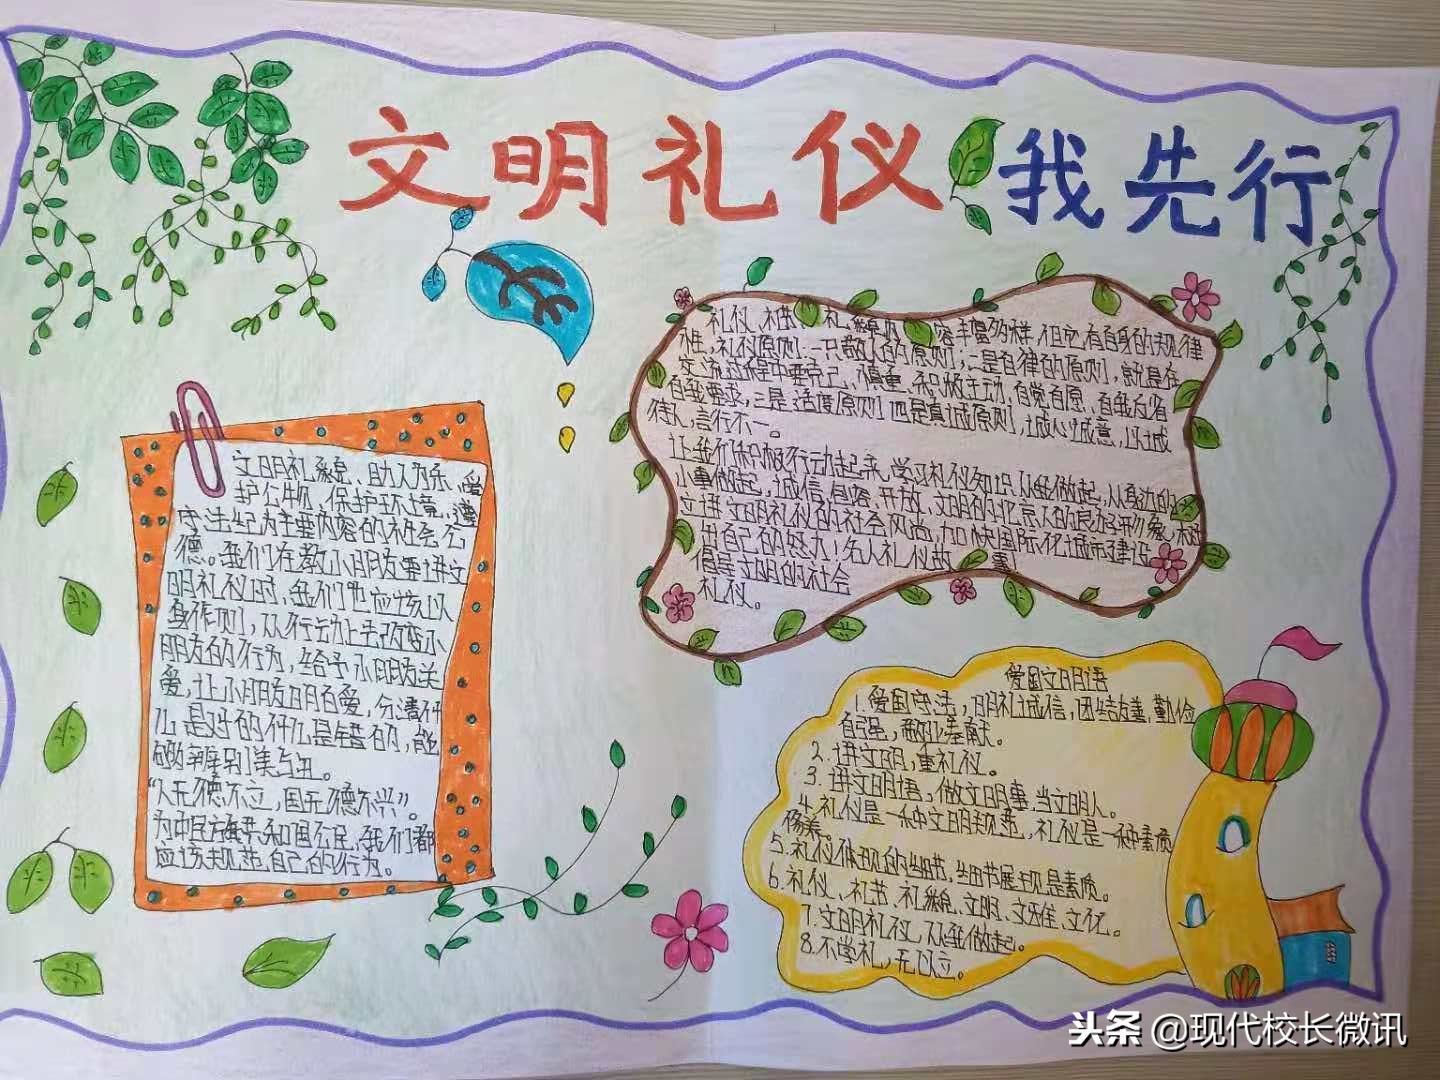 文明礼仪 我先行
文明礼貌、助人为乐、爱
护公物、保护环境、遵
守法纪为主要内容的社会公
德。我们在教小朋友要讲文
明礼仪时,我们也应该以
身作则,从行动上去改变小
朋友的行为,给予小朋友关
爱,让小朋友明白爱,分清什
么是对的什么是错的,能
够辨别美与丑。
“人无德不立,国无德不兴”。
为中民族共和国公民,我们都
应该规范自己的行为。
礼仪、礼节、礼貌内容丰富多样,但它有自身的规律
性,礼仪原则:一只敬人的原则;二是自律的原则,就是在
交流过程中要克己、慎重、积极主动、自觉自愿、自我反省
自我要求,三是适度原则 四是真诚原则,诚心诚意,以诚
待人,言行不一。
让我们积极行动起来,学习礼仪知识,从我做起,从身边的
小事做起,诚信、包容、开放、文明的北京人的良好形象,
立讲文明礼仪的社会风尚,加快国际化城市建设
出自己的努力!名人礼仪故事
倡导文明的社会
礼仪。
爱国文明语
1.爱国守法,明礼诚信,团结友善,勤俭
自强,敬业奉献。
2.讲文明,重礼仪。
3.讲文明语,做文明事,当文明人。
4.礼仪是一种文明规范,礼仪是一种素质
修养。
5.礼仪体现的细节,细节展现是素质。
6.礼仪、礼节、礼貌、文明、文雅、文化。
7.文明礼仪,从我做起。
8.不学礼,无以立。
头条 @现代校长微讯